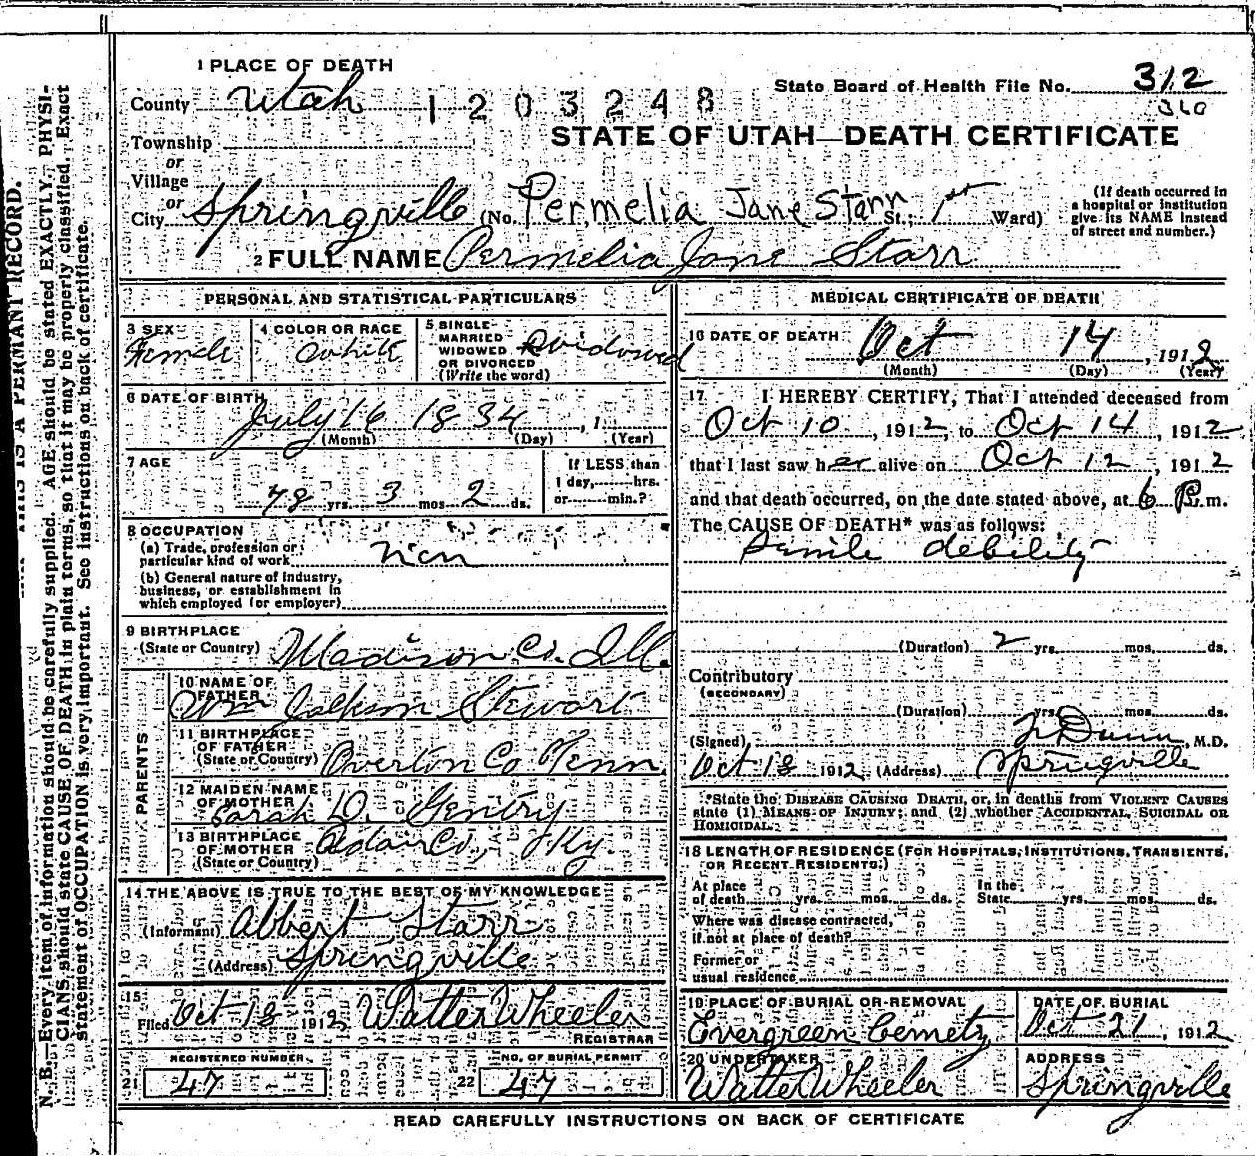 1 PLACE OF DEATH
County Utah 1203248
State Board of Health File No. 312
310
STATE OF UTAH—DEATH CERTIFICATE
Township
or
Village
or
City Springville (No. Permelia Jane Starr St.; 1st Ward)
(If death occurred in a hospital or institution give its NAME instead of street and number.)
2 FULL NAME Permelia Jane Starr
PERSONAL AND STATISTICAL PARTICULARS
3 SEX Female
4 COLOR OR RACE White
5 SINGLE MARRIED WIDOWED OR DIVORCED (Write the word) Widowed
6 DATE OF BIRTH July 16 1834, 1
(Month) (Day) (Year)
7 AGE 78 yrs. 3 mos. 2 ds.
If LESS than 1 day, hrs. or min.?
8 OCCUPATION
(a) Trade, profession or particular kind of work
(b) General nature of industry, business, or establishment in which employed (or employer)
9 BIRTHPLACE (State or Country) Madison Co. Ill.
PARENTS
10 NAME OF FATHER Wm Jackson Stewart
11 BIRTHPLACE OF FATHER (State or Country) Overton Co Tenn.
12 MAIDEN NAME OF MOTHER Sarah D. Gentry
13 BIRTHPLACE OF MOTHER (State or Country) Adair Co., Ky.
14 THE ABOVE IS TRUE TO THE BEST OF MY KNOWLEDGE
(Informant) Albert Starr
(Address) Springville
15 Filed Oct 18 1912, Walter Wheeler
REGISTRAR
REGISTERED NUMBER
21 47
NO. OF BURIAL PERMIT
22 47
MEDICAL CERTIFICATE OF DEATH
16 DATE OF DEATH Oct 14, 1912
(Month) (Day) (Year)
17 I HEREBY CERTIFY, That I attended deceased from
Oct 10, 1912, to Oct 14, 1912
that I last saw her alive on Oct 12, 1912
and that death occurred, on the date stated above, at 6 P.m.
The CAUSE OF DEATH* was as follows:
Senile debility
(Duration) 2 yrs. mos. ds.
Contributory
(SECONDARY)
(Duration) yrs. mos. ds.
(Signed) Dunn, M.D.
Oct 18 1912, (Address) Springville
*State the DISEASE CAUSING DEATH, or, in deaths from VIOLENT CAUSES
state (1) MEANS OF INJURY; and (2) whether ACCIDENTAL, SUICIDAL OR
HOMICIDAL.
18 LENGTH OF RESIDENCE (FOR HOSPITALS, INSTITUTIONS, TRANSIENTS,
OR RECENT RESIDENTS.)
At place of death yrs. mos. ds.
In the State yrs. mos. ds.
Where was disease contracted,
if not at place of death?
Former or
usual residence
19 PLACE OF BURIAL OR REMOVAL Evergreen Cemetry
DATE OF BURIAL Oct 21, 1912
20 UNDERTAKER Walter Wheeler
ADDRESS Springville
READ CAREFULLY INSTRUCTIONS ON BACK OF CERTIFICATE
THIS IS A PERMANT RECORD.
N. B.—Every item of information should be carefully supplied. AGE should be stated EXACTLY. PHYSI-
CIANS should state CAUSE OF DEATH in plain terms, so that it may be properly classified. Exact
statement of OCCUPATION is very important. See instructions on back of certificate.